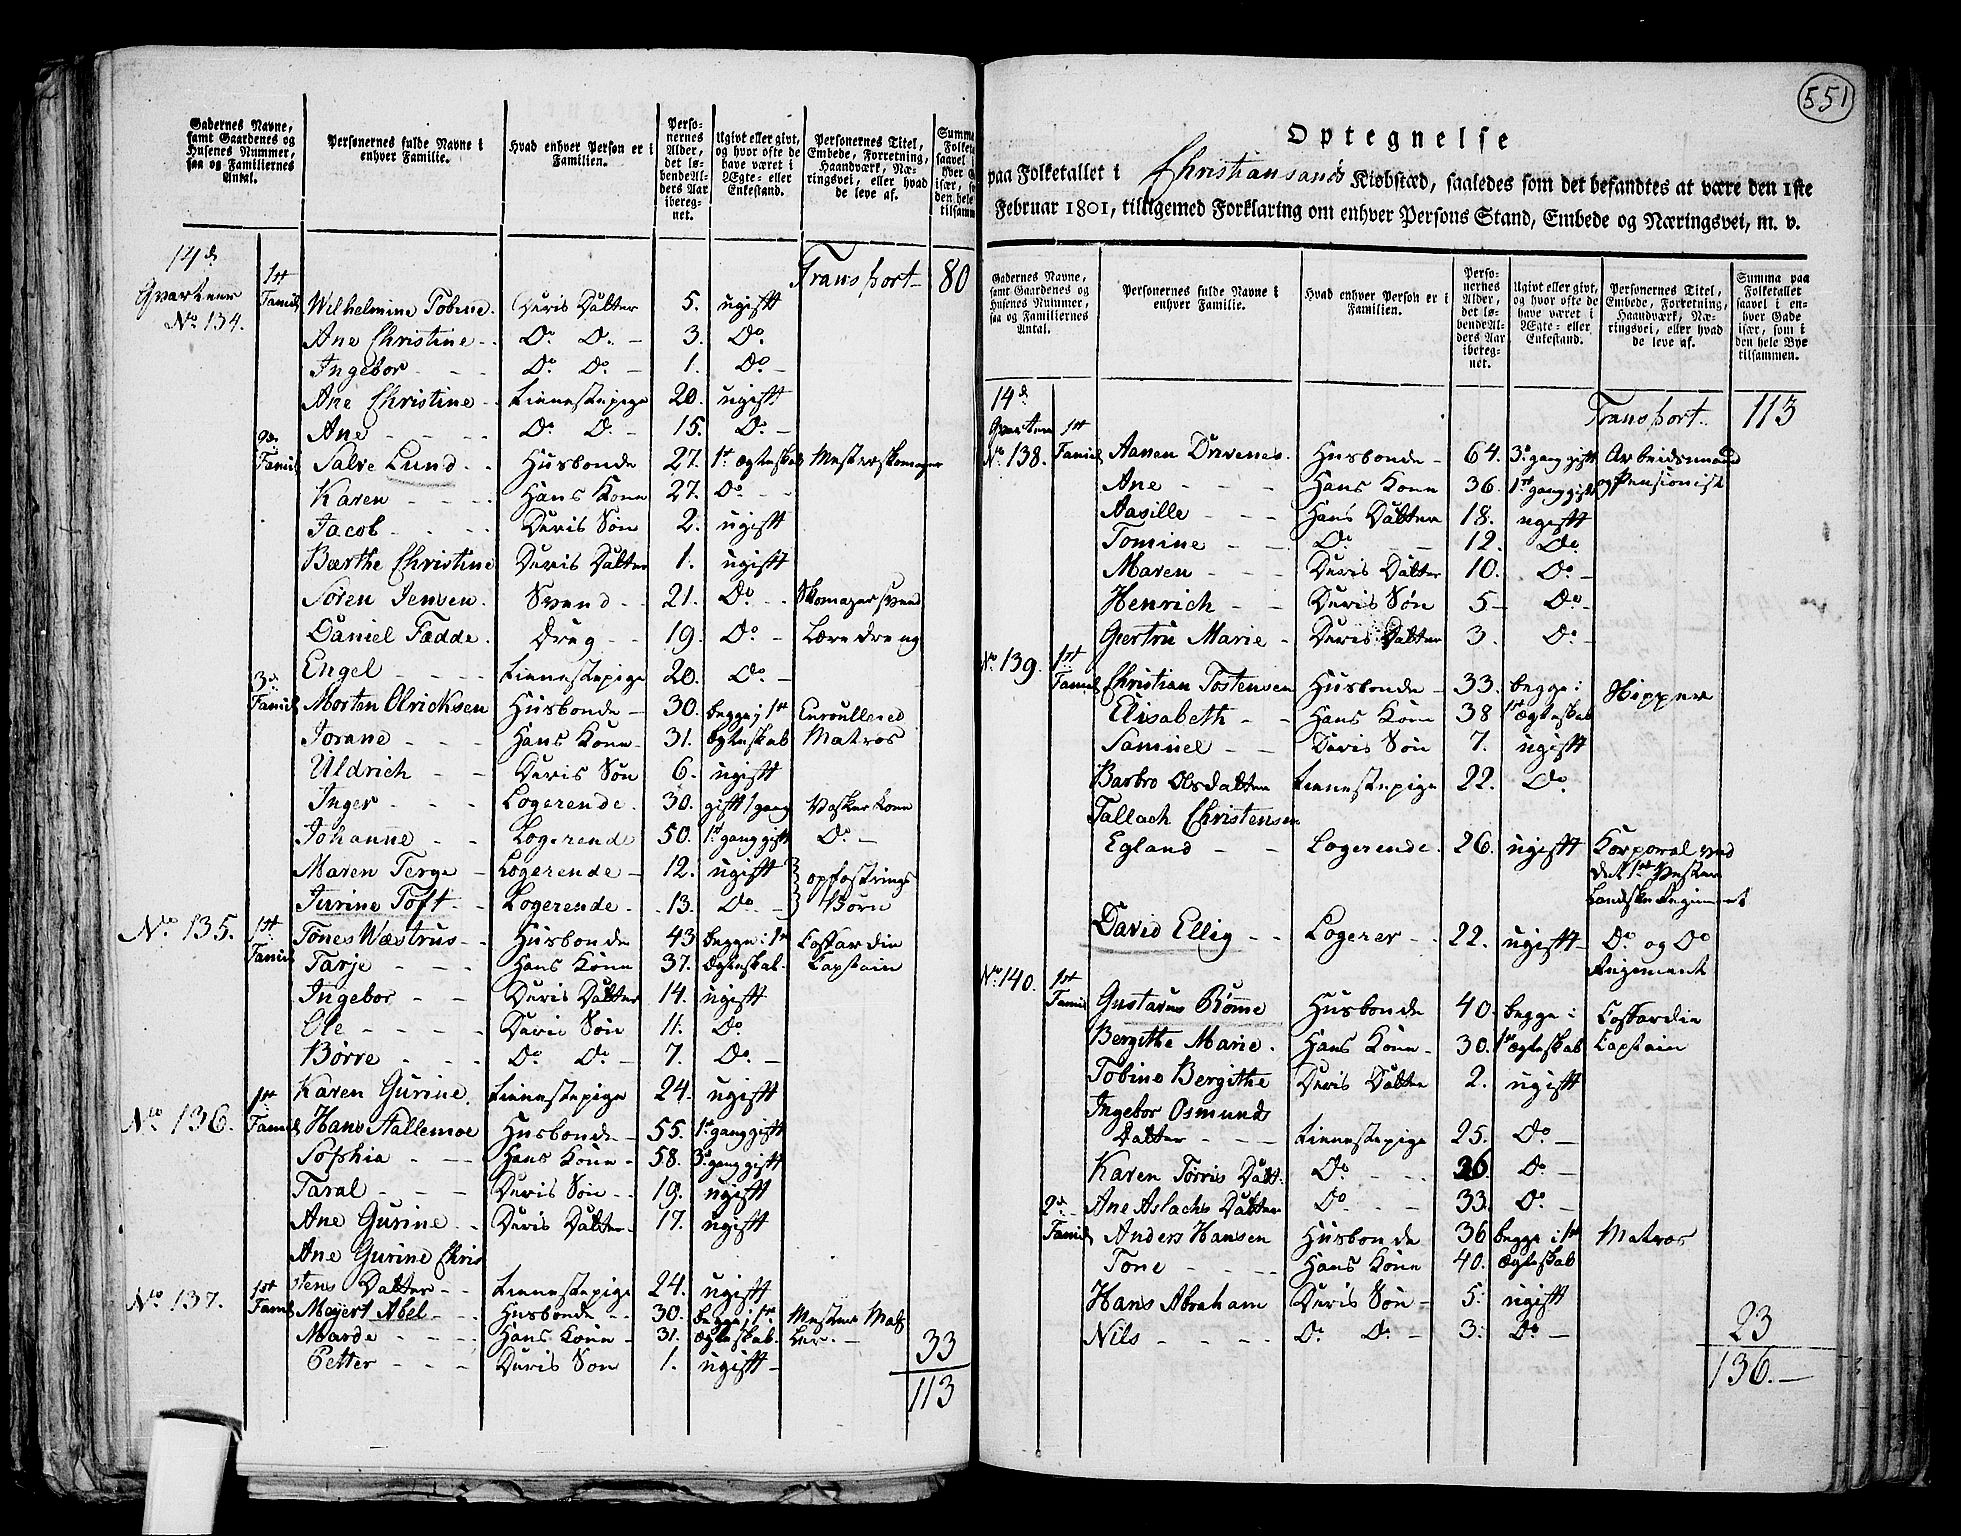 Gadernes Navne, samt Gaardenes og Husenes Nummer, saa og Familiernes Antal.
Personernes fulde Navne i enhver Familie.
Hvad enhver Person er i Familien.
Personernes Alder, det løbende Alders Aar iberegnet.
Ugivt eller givt, og hvor ofte de have været i Ægte- eller Enkestand.
Personernes Titel, Embede, Forretning, Haandværk, Næringsvei, eller hvad de leve af.
Summa Folketa saavel i hver G især, so den hele tilsamm
14de Qvarteer No. 134. 1st Famil
Transport 80
Wilhelmine Tobine. Deris Datter 5. ugift
Ane Christine - Do Do - 3. Do
Ingebor - - - Do Do - 1. Do -
Ane Christine - tienestepige 20. ugift
Ane - - - Do Do - 15. Do -
2de Famil Salve Lund - Husbonde 27. 1st ægteskab Mesterskomager
Karen - - - Hans Kone 27. Do - -
Jacob - - - Deris Søn 2. ugift
Barthe Christine Deris Datter 1. ugift
Søren Jensen. Svend - - 21. Do - - Skomagersvend
Daniel Fadde. Dreng - - 19. Do - Læredreng
Engel - - - tienestepige 20. Do -
3de Famil Morten Olricksen Husbonde - 30. begge i 1st Enroulleret
Jorane - - - Hans Kone - 31. Ægteskab Matros
Uldrich - - Deris Søn 6. ugift
Inger - - - Logerende. 30. gift 1 gang Vasker Kone
Johanne - - Logerende 50. 1st gang gift Do -
Maren Terge - Logerende - 12. ugift opfostrings
Jurine Toft - Logerende - 13. Do - Børn
No. 135. 1st Famil Tønes Wæstrus - Husbonde 43 begge i 1st Coffardie
Tarje - - - Hans Kone 37. Ægteskab. Captain
Ingebor - - Deris Datter 14. ugift
Ole - - - - Deris Søn 11. Do
Børre - - - Do Do - 7. Do -
Karen Gurine. tienestepige 24. ugift
No. 136. 1st Famil Hans Aallemoe Husbonde - 55. 1st gang gift
Sophia - - Hans Kone - 58. 3de gang gift
Taral - - - Deris Søn - - 19. ugift
Ane Gurine - - Deris Datter - 17. ugift
Ane Gurine Chris
tens Datter - - tienestepige 24. ugift
No. 137. 1st Famil Mejert Abel - Husbonde - - 30. begge i 1st Mester
Marde - - - Hans Kone - 31. Ægteskab.
33
Petter - - - Deris Søn 1. ugift -
113
551
Optegnelse
paa Folketallet i Christiansands Kiøbstæd, saaledes som det befandtes at være den 1ste
Februar 1801, tilligemed Forklaring om enhver Persons Stand, Embede og Næringsvei, m. v.
Gadernes Navne, samt Gaardenes og Husenes Nummer, saa og Familiernes Antal.
Personernes fulde Navne i enhver Familie.
Hvad enhver Person er i Familien.
Personernes Alder, det løbende Alders Aar iberegnet.
Ugivt eller givt, og hvor ofte de have været i Ægte- eller Enkestand.
Personernes Titel, Embede, Forretning, Haandværk, Næringsvei, eller hvad de leve af.
Summa paa Folketallet saavel i enhver Gade især, som i den hele Bye tilsammen.
14de Qvarteer
Transport. 113
No. 138. 1st Famil Aanen Drivenes. Husbonde - 64. 3de gang gift Arbeidsmand
Ane - - - Hans Kone 36. 1st gang gift og Pensionist
Aasille - - - Hans Datter 18. ugift
Tomine - - Do - 12. Do
Maren - - - Deris Datter 10. Do -
Henrich - - Deris Søn 5 - Do -
Giertru Marie - Deris Datter 3. Do -
No. 139. 1st Famil Christian Tostensen Husbonde - 33. begge i Skipper
Elisabeth - - Hans Kone 38 1st Ægteskab
Samuel - - Deris Søn 7. ugift
Barbro Olsdatter tienestepige 22. Do
Tallach Christensen
Egland - - Logerende. 26. ugift Korporal ved
det 1st Vester
Landske Regiment
David Ellig - - Logerer - - 22. ugift - Do og Do
Regiment
No. 140. 1st Famil Gustavus Rømme Husbonde 40. begge i Coffardie
Bergithe Marie. Hans Kone - 30. 1st Ægteskab Captain
Tobine Bergithe Deris Datter 2. ugift
Ingebor Osmunds
Datter - - - tienestepige 25. Do -
Karen Torris Datt. Do - - - 26 Do -
Ane Aslachs Datter Do - - 33. Do -
2de Famil Anders Hansen Husbonde 36 begge i 1st Matros
Tone - - - Hans Kone 40. Ægteskab
Hans Abraham Deris Søn - 5. ugift
23
Nils - - - - Do Do - 3. Do -
136. -